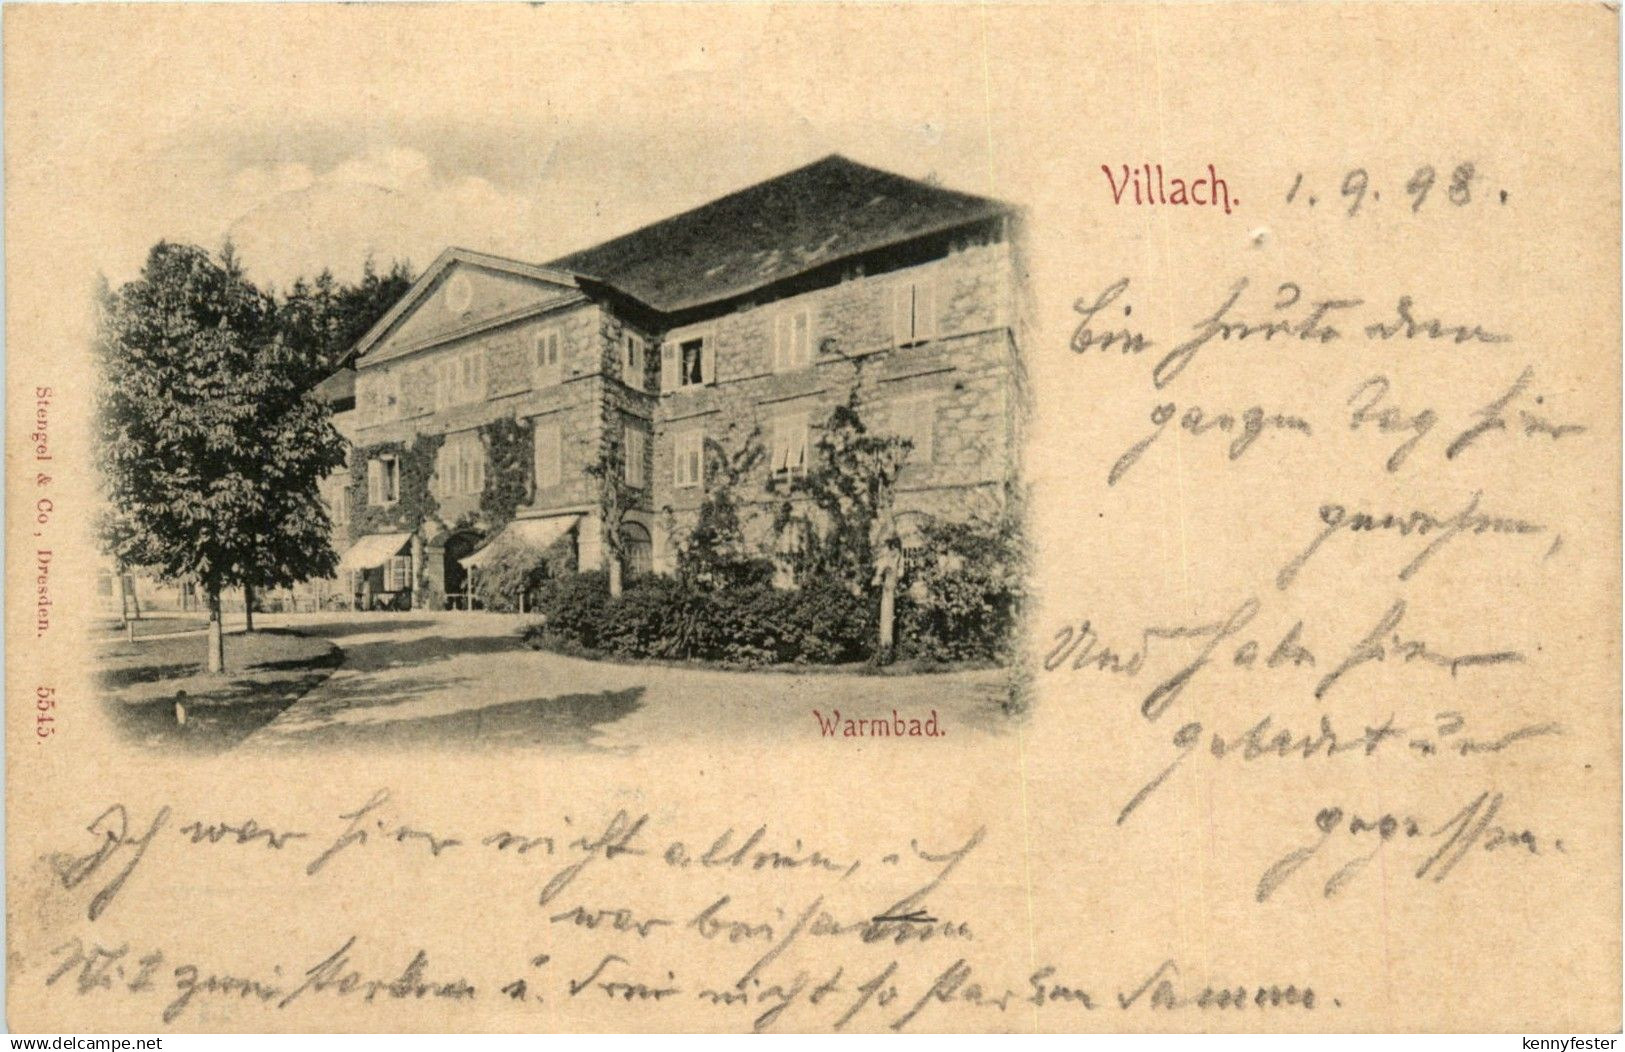 Villach. 1. 9. 98.
Bin heute den
ganzen Tag hier
gewesen,
Und habe hier
gebadet und
gegessen.
Warmbad.
Stengel & Co, Dresden. 5545.
Ich war hier nicht allein, ich
war beisammen
Mit zwei starken u. drei nicht so starken Damen.
kennyfester